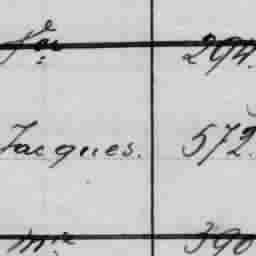 294.
Jacques. 572.
Mr 390